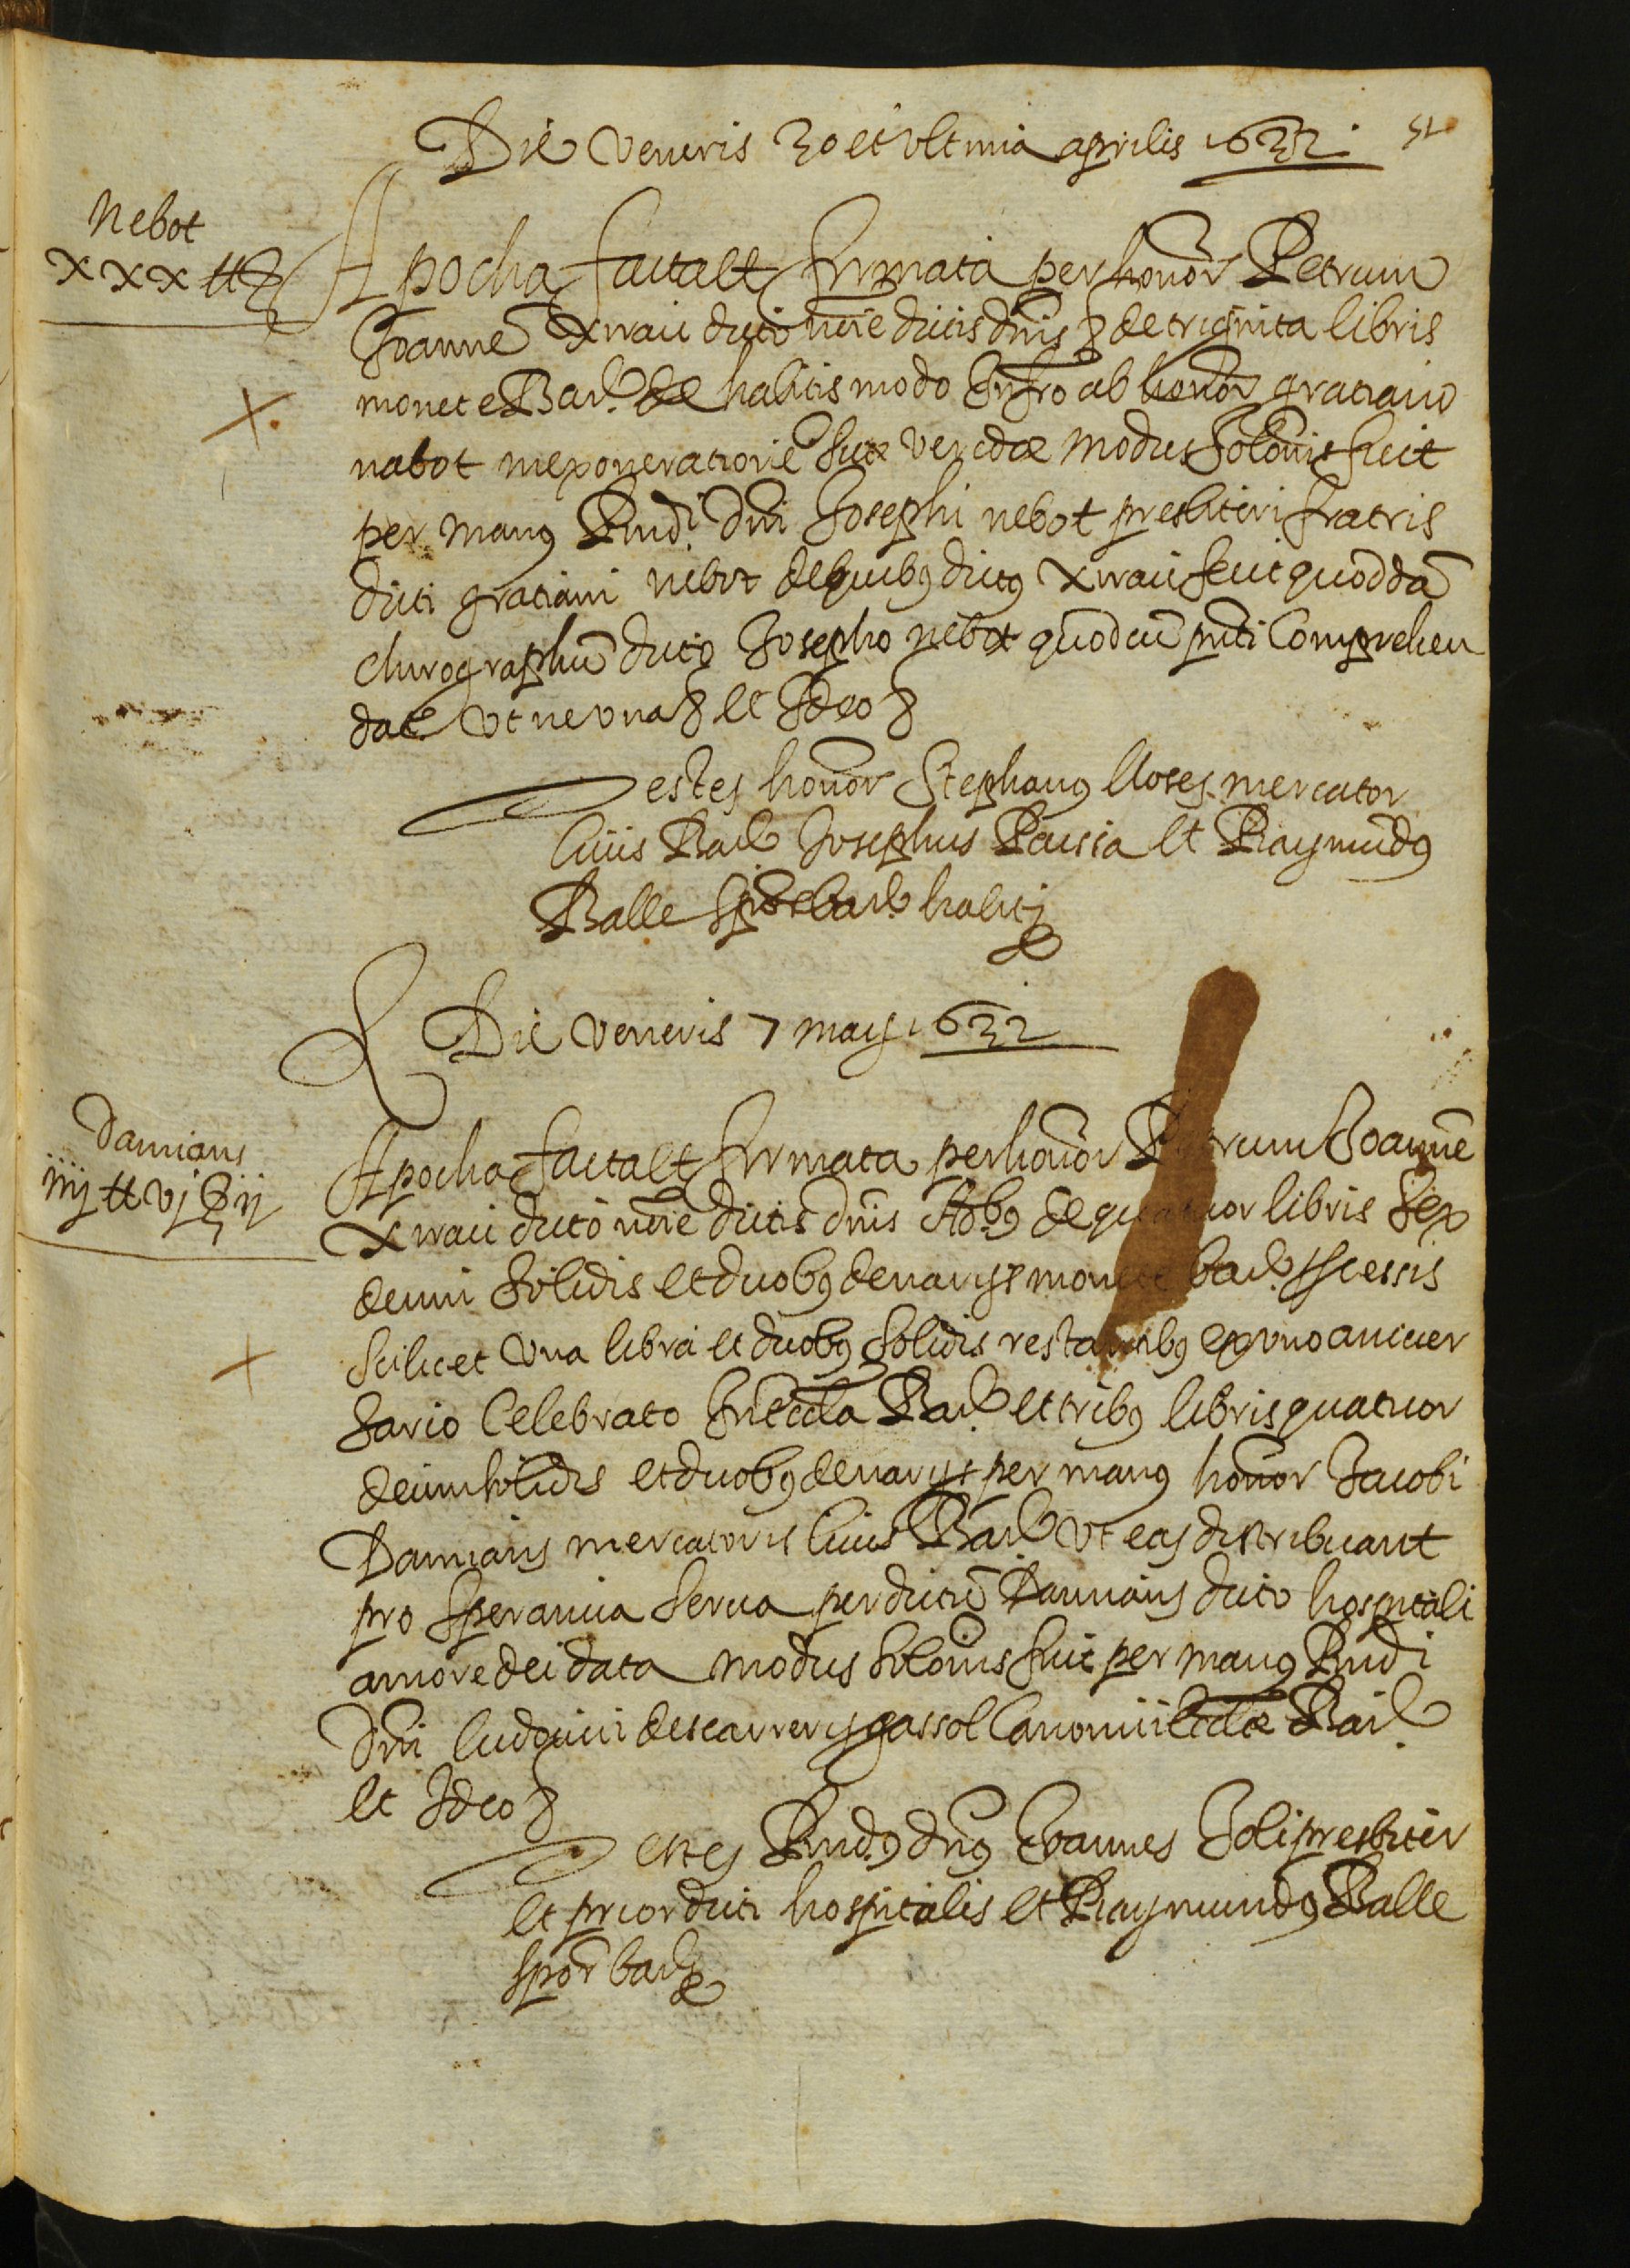 Die veneris 30 et vltmia aprilis 1632
51
Nebot
xxx ₶
Apocha facta et firmata per honor Petrum
Joanne Xirau dicto nōie dictis dnis de triginta libris
monete Bar.
habitis modo infro ab honor gratiano
nabot in exoneratione sue veredæ modus solonis fuit
per manus Rndi dni Josephi nebot presbiteri fratris
dicti gratiani nebot de quibus dictus Xirau fecit quoddā
chirographū dicto Josepho nebot quod cū pnti comprehen
dat vt ne vna et Ideo
Testes honor Stephanus lloses mercator
civis Bar Josephus Pausia et Raymundus
Balle Bar habit
Die veneris 7 maij 1632
Damians
iiij ₶ vj ß ij
Apocha facta et firmata per honor Petrum Joannē
Xirau dicto nōie dictis dnis Aōbus de quatuor libris sex
decim solidis et duobus denarijs monete bar. scessis
scilicet vna libra et duobus solidis restantibus ex vno aniver
sario Celebrato In eccla Bar. et tribus libris quatuor
decim solidis et duobus denarijs per manus honor Jacobi
Damians mercatoris civis Bar vt eas distribuant
pro Sperancia serva per dictū Damians dicto hospitali
amore dei data modus solonis fuit per manus Rndi
dni ludovici descarrer y gassol Canonici ecclæ Bar
et Ideo
Testes Rndus dnus Joannes Soli presbiter
et prior dicti hospitalis et Raymundus Balle
spor bar